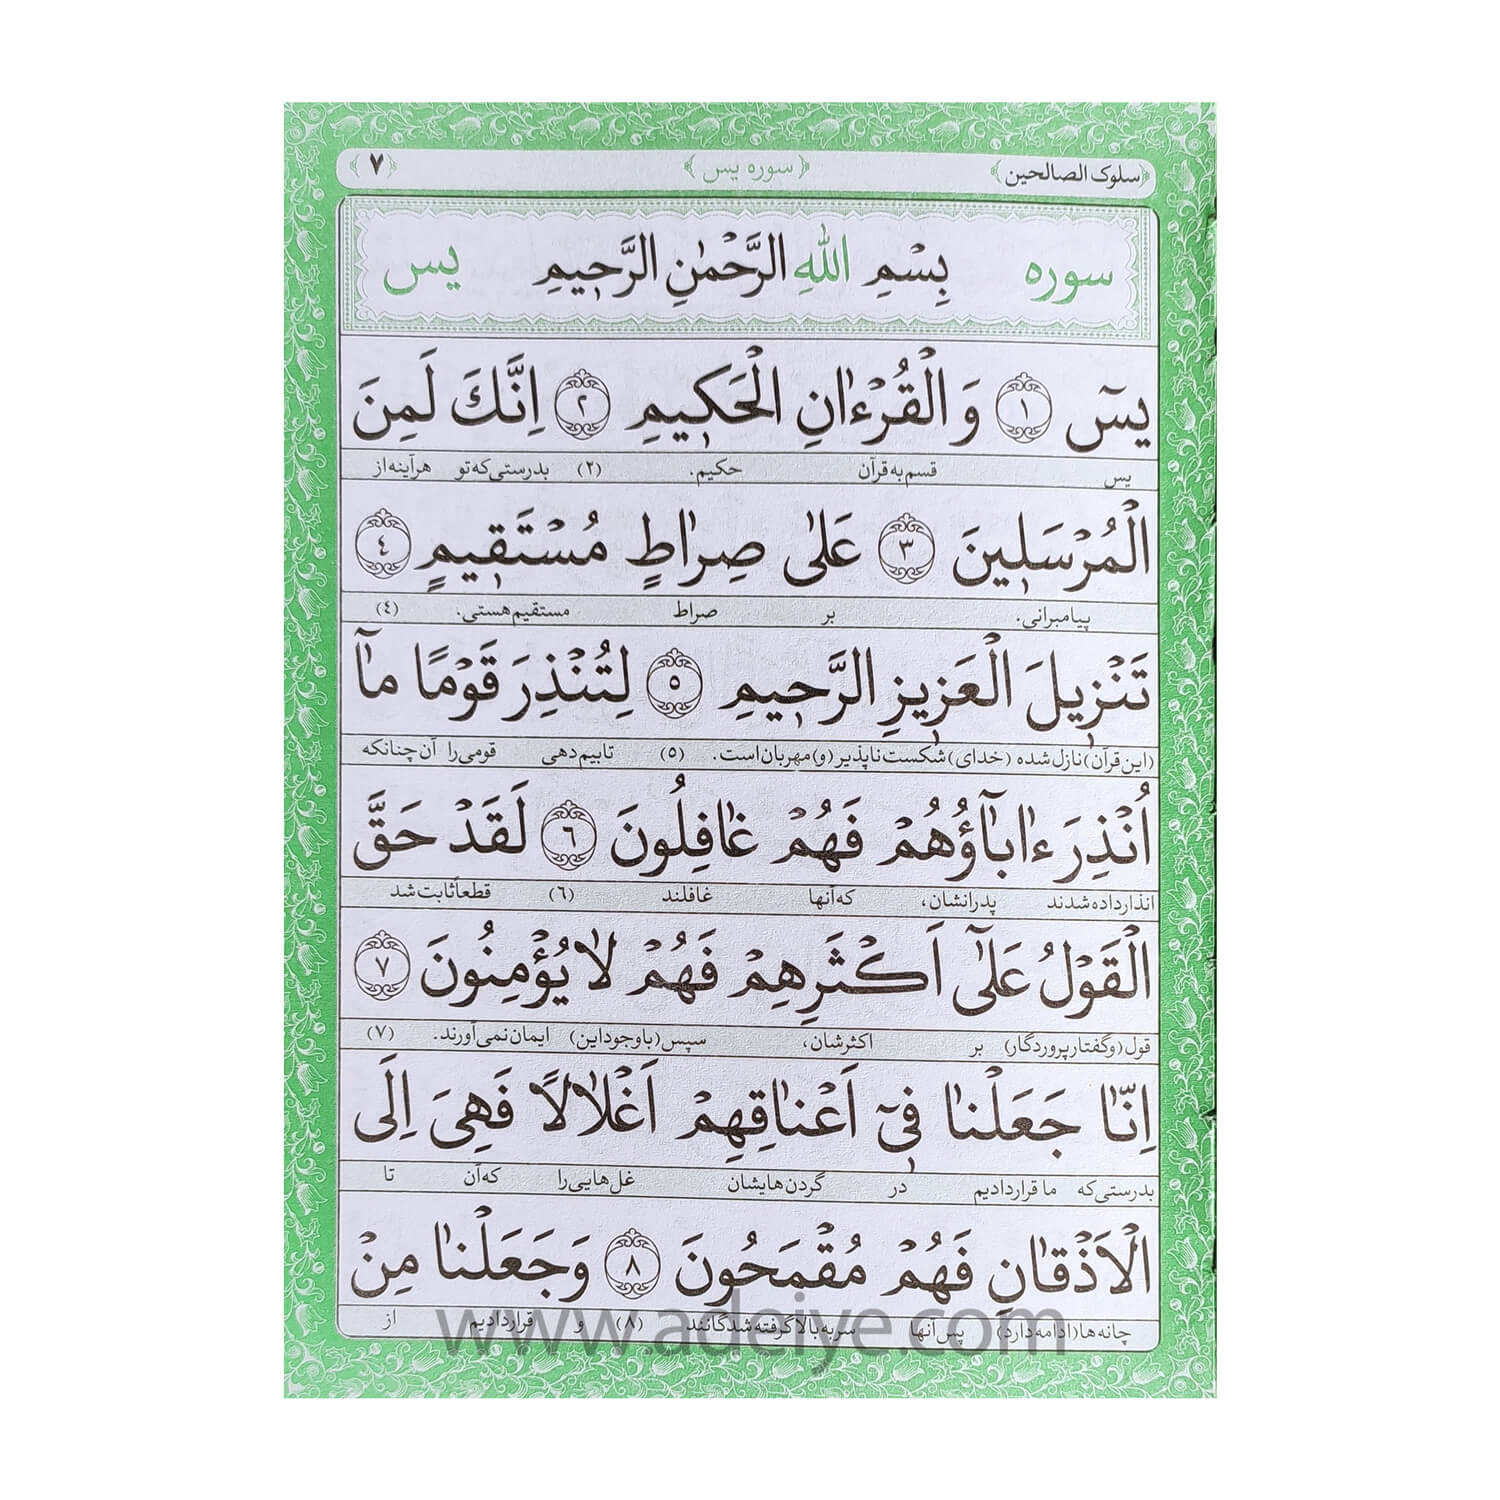 ﴿سلوک الصالحین﴾ ﴿سوره یس﴾ ﴿۷﴾
سوره بِسْمِ اللّٰهِ الرَّحْمٰنِ الرَّحیمِ یس
یسٓ ﴿١﴾ وَ الْقُرْءٰانِ الْحَکیمِ ﴿٢﴾ اِنَّكَ لَمِنَ
یس قسم به قرآن حکیم. (۲) بدرستی که تو هرآینه از
الْمُرْسَلینَ ﴿٣﴾ عَلىٰ صِرٰاطٍ مُسْتَقیمٍ ﴿٤﴾
پیامبرانی. بر صراط مستقیم هستی. (٤)
تَنْزیلَ الْعَزیزِ الرَّحیمِ ﴿٥﴾ لِتُنْذِرَ قَوْمًا مٰآ
(این قرآن) نازل شده (خدای) شکست ناپذیر (و) مهربان است. (٥) تا بیم دهی قومی را آن چنانکه
اُنْذِرَ ءٰابٰآؤُهُمْ فَهُمْ غٰافِلُونَ ﴿٦﴾ لَقَدْ حَقَّ
انذار داده شدند پدرانشان، که آنها غافلند (٦) قطعاً ثابت شد
الْقَوْلُ عَلىٰٓ اَكْثَرِهِمْ فَهُمْ لٰا یُؤْمِنُونَ ﴿٧﴾
قول (و گفتار پروردگار) بر اکثرشان، سپس (با وجود این) ایمان نمی آورند. (۷)
اِنّٰا جَعَلْنٰا فیٓ اَعْنٰاقِهِمْ اَغْلٰالًا فَهِیَ اِلَی
بدرستی که ما قراردادیم در گردن هایشان غل هایی را که آن تا
الْاَذْقٰانِ فَهُمْ مُقْمَحُونَ ﴿٨﴾ وَ جَعَلْنٰا مِنْ
چانه ها (ادامه دارد) پس آنها سر به بالا گرفته شدگانند (۸) و قراردادیم از
www.adeiye.com